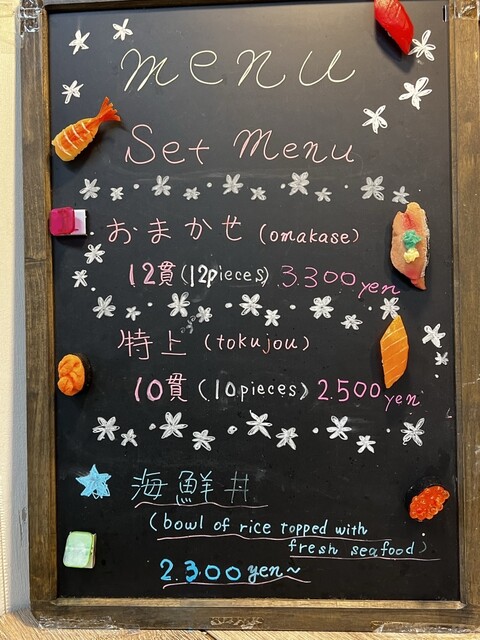 menu
Set Menu
おまかせ (omakase)
12貫 (12pieces) 3.300 yen
特上 (tokujou)
10貫 (10pieces) 2.500 yen
海鮮丼
(bowl of rice topped with
fresh seafood)
2.300 yen~